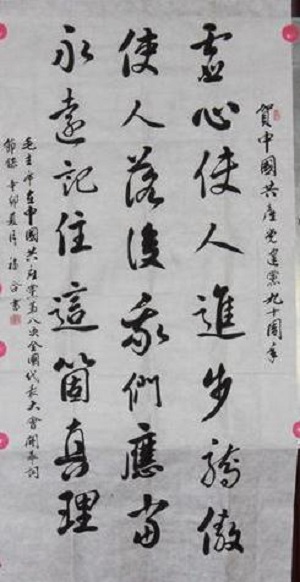 賀中國共產党建黨九十周年
虛心使人進步驕傲
使人落後我們應當
永遠記住這箇真理
毛主席在中國共產黨第八次全國代表大會開幕詞
節錄 辛卯夏月 書